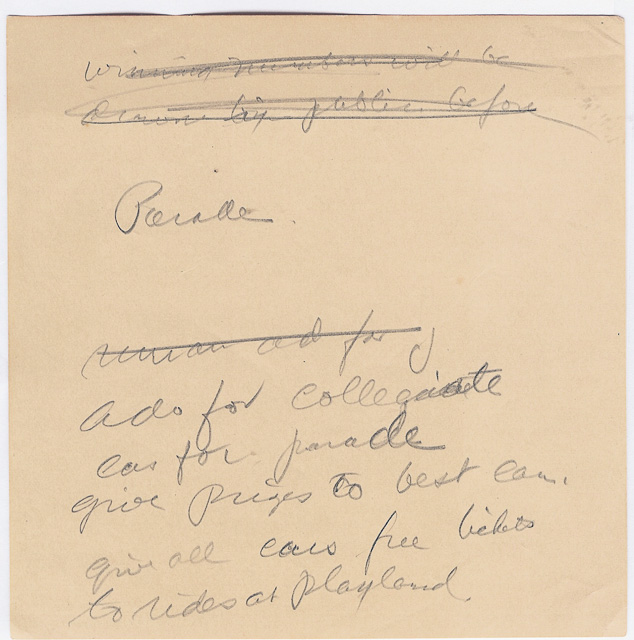 winning numbers will be
drawn by public before
Parade
ad for
Ads for collegiate
cars for parade
give prizes to best cars.
give all cars free tickets
to rides at Playland